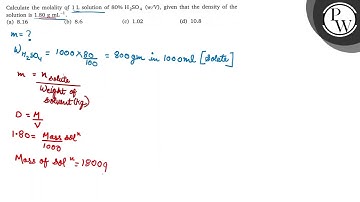 Calculate the molality of 1 L solution of 80% H₂SO₄ (w/V), given that the density of the
solution is 1.80 g mL⁻¹.
(a) 8.16 (b) 8.6 (c) 1.02 (d) 10.8
PW
m = ?
W H₂SO₄ = 1000 × 80/100 = 800 gm in 1000 ml [solute]
m = n solute / Weight of solvent (kg)
D = M/V
1.80 = Mass solⁿ / 1000
Mass of solⁿ = 1800g